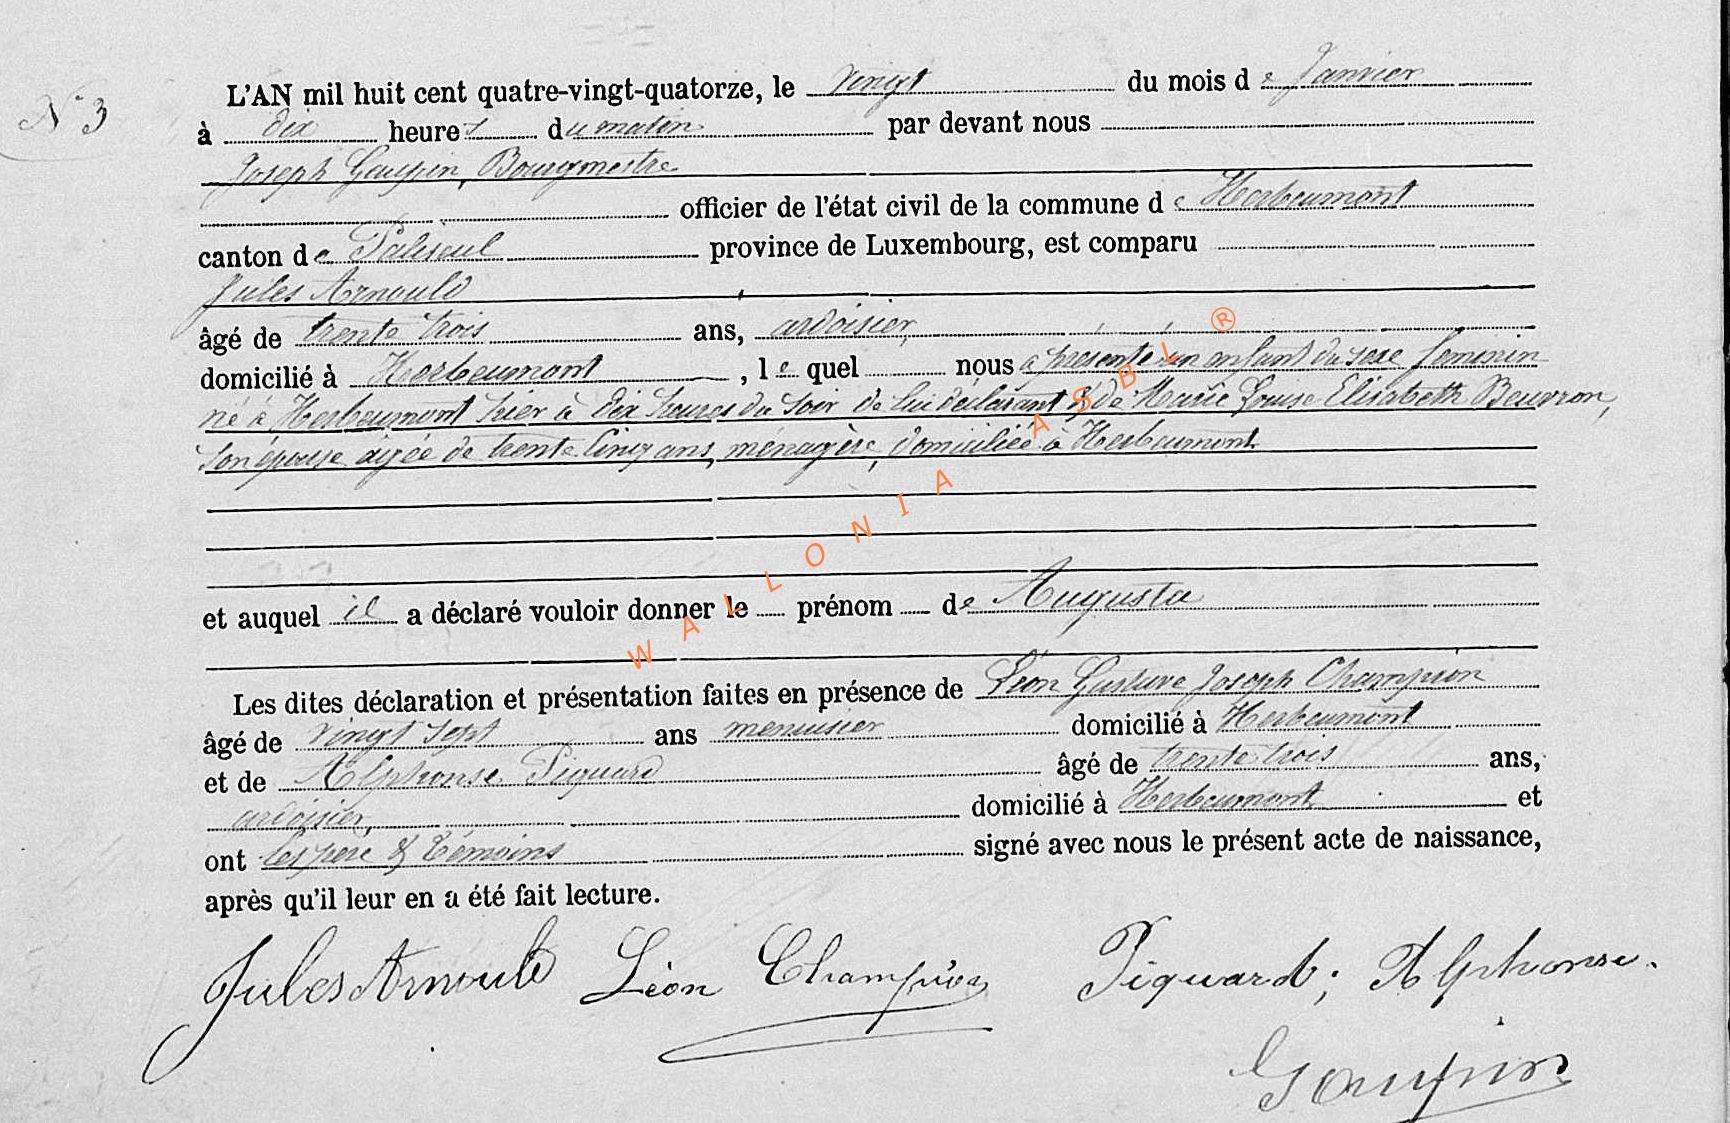 N° 3
L'AN mil huit cent quatre-vingt-quatorze, le vingt du mois de Janvier
à dix heures du matin par devant nous
Joseph Goupin, Bourgmestre
officier de l'état civil de la commune de Herbeumont
canton de Paliseul province de Luxembourg, est comparu
Jules Arnould
âgé de trente trois ans, ardoisier,
domicilié à Herbeumont, lequel nous a présenté un enfant du sexe feminin
né à Herbeumont hier à dix heures du soir de lui déclarant & de Marie Louise Elisabeth Beuvron,
son épouse agée de trente cinq ans, ménagère, domiciliée à Herbeumont
et auquel il a déclaré vouloir donner le prénom de Augusta
Les dites déclaration et présentation faites en présence de Léon Gustave Joseph Champion
âgé de vingt sept ans menuisier domicilié à Herbeumont
et de Alphonse Piquard âgé de trente trois ans,
ardoisier, domicilié à Herbeumont et
ont les père & témoins signé avec nous le présent acte de naissance,
après qu'il leur en a été fait lecture.
Jules Arnould Léon Champion Piquard, Alphonse.
Goupin
WALLONIA ASBL ®